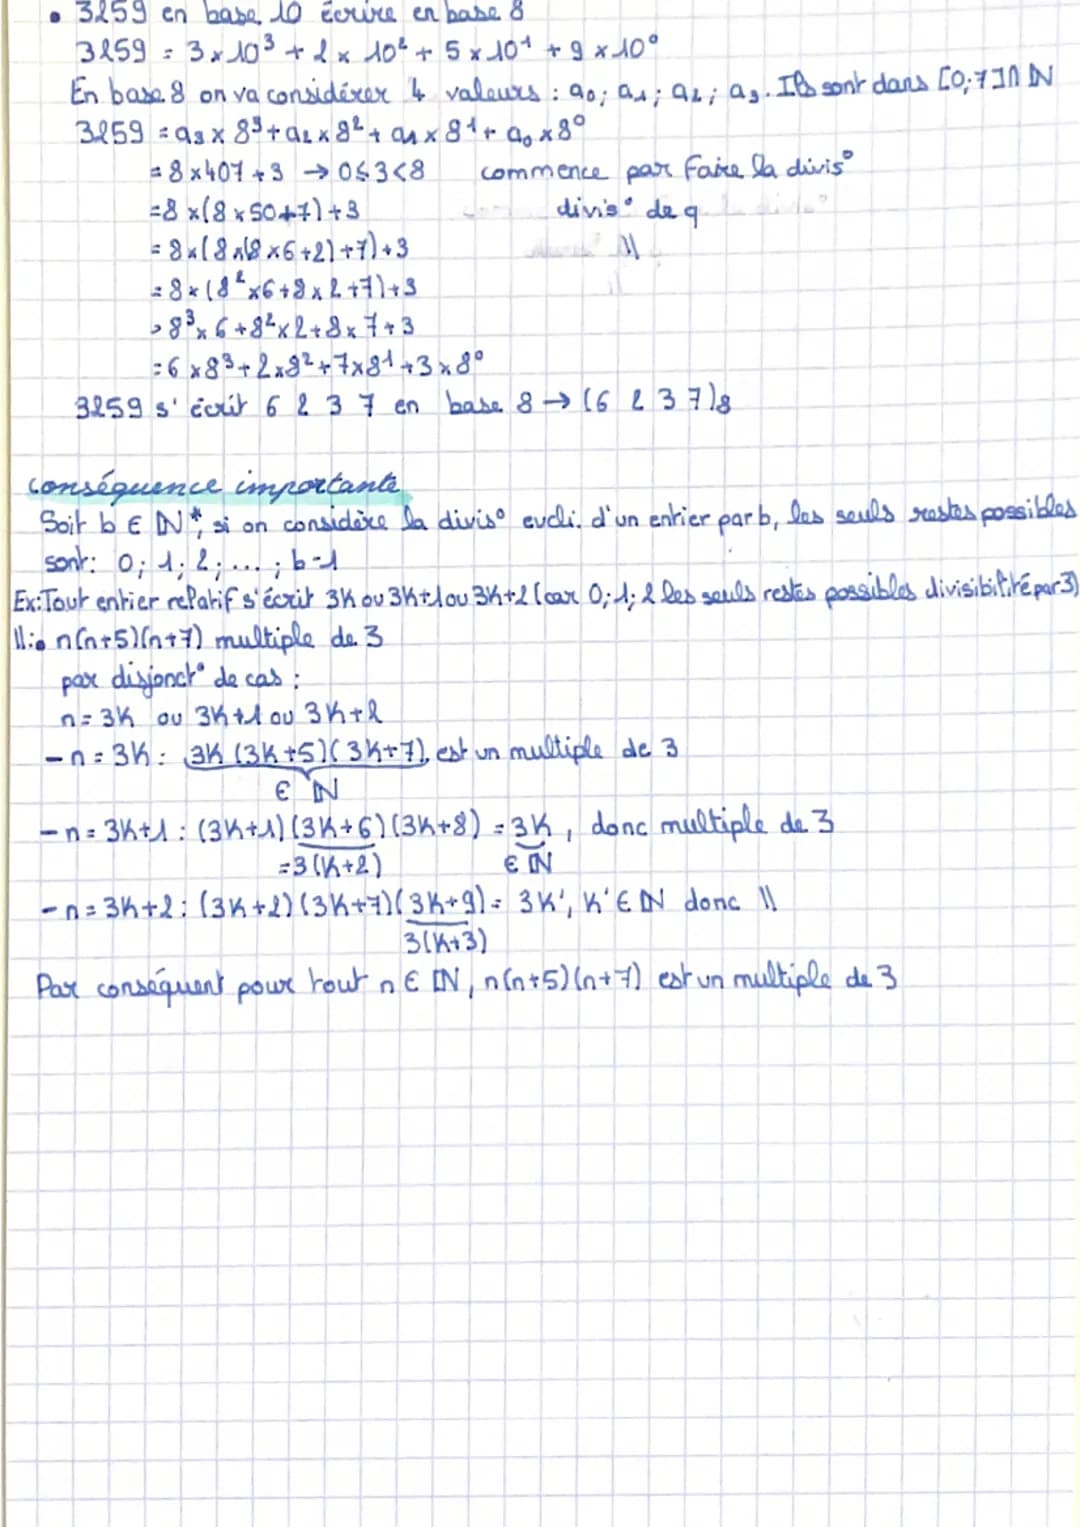 • 3259 en base 10 écrire en base 8
3259 = 3 x 10³ + 2 x 10² + 5 x 10¹ + 9 x 10⁰
En base 8 on va considérer 4 valeurs : a₀; a₁; a₂; a₃. Ils sont dans [0;7]∩ℕ
3259 = a₃ x 8³ + a₂ x 8² + a₁ x 8¹ + a₀ x 8⁰
= 8 x 407 + 3 → 0≤3<8 commence par faire la divis°
= 8 x (8 x 50+7) + 3 divis° de q
= 8 x (8 x (8 x 6 + 2) + 7) + 3 \\
= 8 x (8² x 6 + 8 x 2 + 7) + 3
= 8³ x 6 + 8² x 2 + 8 x 7 + 3
= 6 x 8³ + 2 x 8² + 7 x 8¹ + 3 x 8⁰
3259 s'écrit 6 2 3 7 en base 8 → (6 2 3 7)₈
conséquence importante
Soit b ∈ ℕ*, si on considère la divis° eucli. d'un entier par b, les seuls restes possibles
sont: 0; 1; 2; ... ; b-1
Ex: Tout entier relatif s'écrit 3K ou 3K+1 ou 3K+2 (car 0; 1; 2 les seuls restes possibles divisibilité par 3)
\\:• n(n+5)(n+7) multiple de 3
par disjonct° de cas :
n = 3K ou 3K+1 ou 3K+2
- n = 3K : 3K (3K+5)(3K+7), est un multiple de 3
∈ ℕ
- n = 3K+1 : (3K+1)(3K+6)(3K+8) = 3K, donc multiple de 3
=3(K+2) ∈ ℕ
- n = 3K+2 : (3K+2)(3K+7)(3K+9) = 3K', K'∈ ℕ donc \\
3(K+3)
Par conséquent pour tout n ∈ ℕ, n(n+5)(n+7) est un multiple de 3